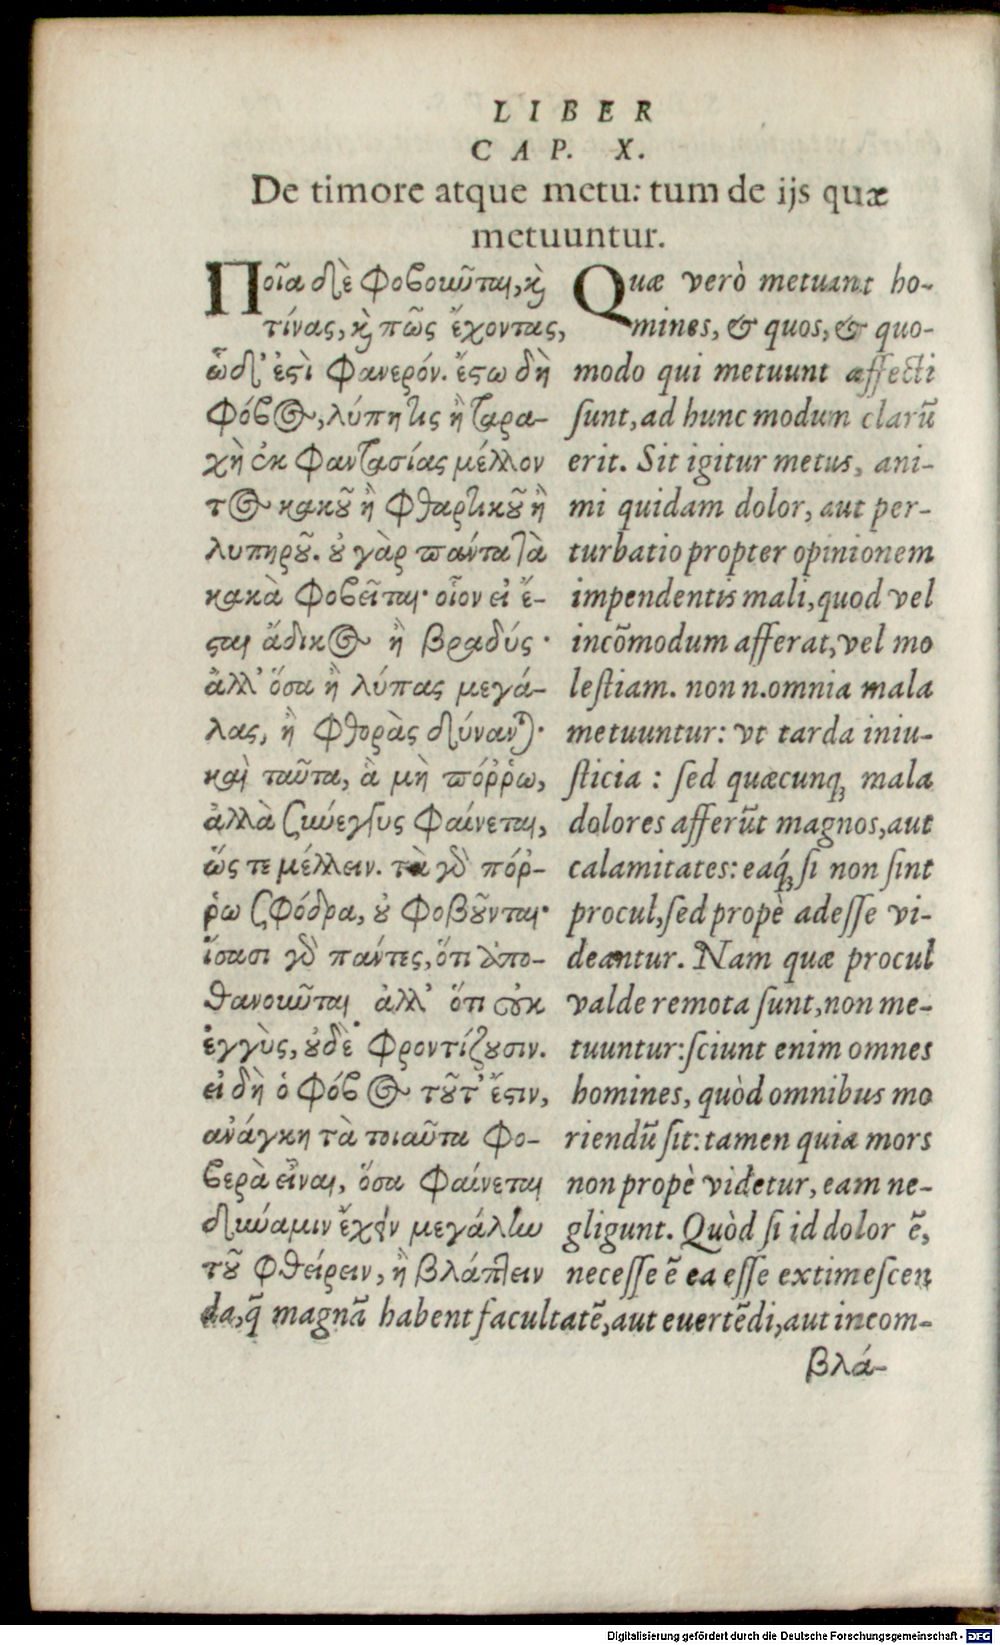 LIBER
CAP. X.
De timore atque metu: tum de ijs quæ
metuuntur.
Ποῖα δὲ φοβοῦνται, κὶ
τίνας, κὶ πῶς ἔχοντας,
ὧδ' ἐστὶ φανερόν. ἔστω δὴ
φόβος, λύπη τις ἢ ταρα-
χὴ ἐκ φαντασίας μέλλον
τος κακοῦ ἢ φθαρτικοῦ ἢ
λυπηροῦ. οὐ γὰρ πάντα τὰ
κακὰ φοβεῖται· οἷον εἰ ἔ-
σται ἄδικος ἢ βραδύς·
ἀλλ' ὅσα ἢ λύπας μεγά-
λας, ἢ φθορὰς δύναν)·
καὶ ταῦτα, ἃ μὴ πόῤῥω,
ἀλλὰ σύνεγγυς φαίνεται,
ὥς τε μέλλειν. τὰ γὸ πόῤ-
ῥω σφόδρα, οὐ φοβοῦνται·
ἴσασι γὸ πάντες, ὅτι ἀπο-
θανοῦνται ἀλλ' ὅτι οὐκ
ἐγγὺς, οὐδὲ φροντίζουσιν.
εἰ δὴ ὁ φόβος τοῦτ' ἔστιν,
ἀνάγκη τὰ τοιαῦτα φο-
βερὰ εἶναι, ὅσα φαίνεται
δύναμιν ἔχειν μεγάλην
τοῦ φθείρειν, ἢ βλάπτειν
Quæ verò metuant ho-
mines, & quos, & quo-
modo qui metuunt affecti
sunt, ad hunc modum clarū
erit. Sit igitur metus, ani-
mi quidam dolor, aut per-
turbatio propter opinionem
impendentis mali, quod vel
incōmodum afferat, vel mo
lestiam. non n. omnia mala
metuuntur: vt tarda iniu-
sticia : sed quæcunq; mala
dolores afferūt magnos, aut
calamitates: eaq́; si non sint
procul, sed propè adesse vi-
deantur. Nam quæ procul
valde remota sunt, non me-
tuuntur: sciunt enim omnes
homines, quòd omnibus mo
riendū sit: tamen quia mors
non propè videtur, eam ne-
gligunt. Quòd si id dolor ē,
necesse ē ea esse extimescen
da, q̄ magnā habent facultatē, aut euertēdi, aut incom-
βλά-
Digitalisierung gefördert durch die Deutsche Forschungsgemeinschaft - DFG